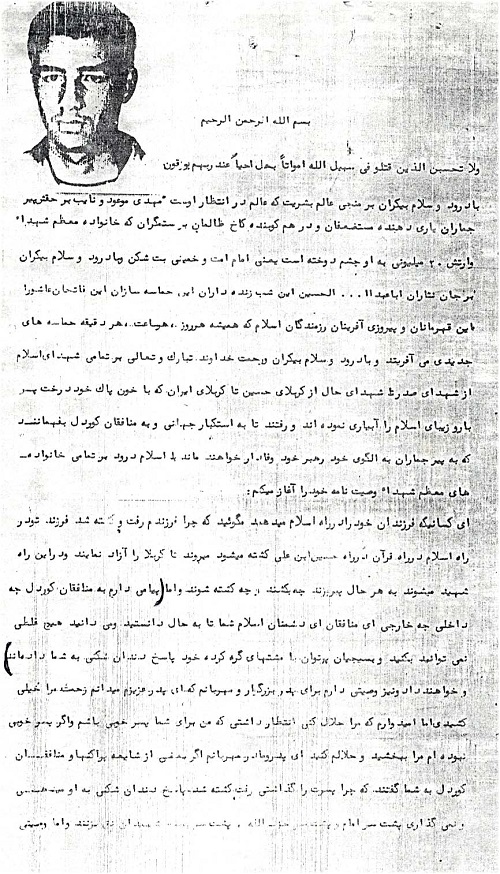 بسم الله الرحمن الرحیم
ولا تحسبن الذین قتلو فی سبیل الله امواتاً بل احیاً عند ربهم یرزقون
با درود و سلام بیکران بر منجی عالم بشریت که عالم در انتظار اوست مهدی موعود و نایب بر حقش پیر
جماران یاری دهنده مستضعفان و در هم کوبنده کاخ ظالمان بر ستمگران که خانواده معظم شهداء
وارتش ۲۰ میلیونی به او چشم دوخته است یعنی امام امت و خمینی بت شکن وبادرود و سلام بیکران
بر جان نثاران اباعبداا... الحسین این شب زنده داران این حماسه سازان این فاتحان عاشورا
باین قهرمانان و پیروزی آفرینان رزمندگان اسلام که همیشه هرروز، هرساعت، هر دقیقه حماسه های
جدیدی می آفرینند و بادرود و سلام بیکران ورحمت خداوند تبارک وتعالی بر تمامی شهدای اسلام
از شهدای صدر تا شهدای حال از کربلای حسین تا کربلای ایران که با خون پاک خود درخت پر
بار و زیبای اسلام را آبیاری نموده اند و رفتند تا به استکبار جهانی و به منافقان کوردل بفهمانند
که به پیر جماران به الگوی خود رهبر خود وفادار خواهند ماند با اسلام درود بر تمامی خانواده
های معظم شهداء وصیت نامه خود را آغاز میکنم :
ای کسانیکه فرزندان خود را در راه اسلام میدهید مگوئید که چرا فرزندم رفت و کشته شد فرزند تو در
راه اسلام در راه قرآن در راه حسین ابن علی کشته میشود میروند تا کربلا را آزاد نمایند ودر این راه
شهید میشوند به هر حال پیروزند چه بکشند و چه کشته شوند واما (پیامی دارم به منافقان کوردل چه
داخلی چه خارجی ای منافقان ای دشمنان اسلام شما تا به حال دانستید ومی دانید هیچ غلطی
نمی توانید بکنید و بسیجیان پرتوان با مشتهای گره کرده خود پاسخ دندان شکنی به شما داده اند)
و خواهند داد ونیز وصیتی دارم برای پدر بزرگوار و مهربانم که ای پدر عزیزم میدانم زحمت مرا خیلی
کشیدی اما امیدوارم که مرا حلال کنی انتظار داشتی که من برای شما پسر خوبی باشم واگر پسر خوبی
نبوده ام مرا ببخشید و حلالم کنید ای پدر ومادر مهربانم اگر بعضی از شایعه پراکنها و منافقان
کوردل به شما گفتند که چرا پسرت را گذاشتی رفت کشته شد پاسخ دندان شکنی به او میدهی
و نمی گذاری پشت سر امام و پشت سر حزب الله و پشت سر شهیدان بزنند واما وصیتی